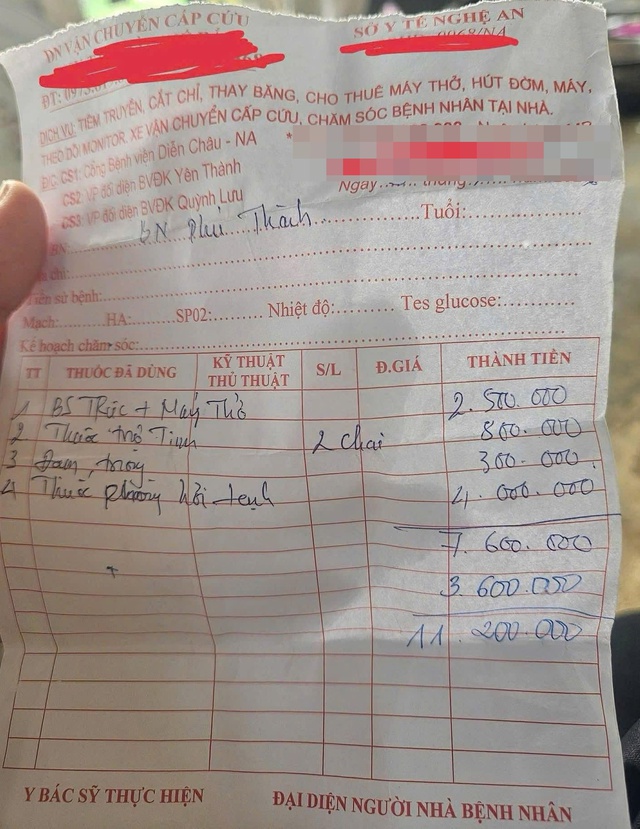 DN VẬN CHUYỂN CẤP CỨU
SỞ Y TẾ NGHỆ AN
ĐT:
DỊCH VỤ: TIÊM TRUYỀN, CẮT CHỈ, THAY BĂNG, CHO THUÊ MÁY THỞ, HÚT ĐỜM, MÁY,
THEO DÕI MONITOR. XE VẬN CHUYỂN CẤP CỨU, CHĂM SÓC BỆNH NHÂN TẠI NHÀ.
Đ/C: CS1: Cổng Bệnh viện Diễn Châu - NA
CS2: VP đối diện BVĐK Yên Thành
CS3: VP đối diện BVĐK Quỳnh Lưu
Ngày
BN Phú Thành Tuổi:
Tiền sử bệnh:
Mạch: HA: SP02: Nhiệt độ: Tes glucose:
Kế hoạch chăm sóc:
TT THUỐC ĐÃ DÙNG KỸ THUẬT THỦ THUẬT S/L Đ.GIÁ THÀNH TIỀN
1 BS Trực + Máy Thở 2.500.000
2 Thuốc trợ Tim 2 chai 800.000
3 Đạm 300.000
4 Thuốc phòng hồi 4.000.000
7.600.000
3.600.000
11.200.000
Y BÁC SỸ THỰC HIỆN
ĐẠI DIỆN NGƯỜI NHÀ BỆNH NHÂN